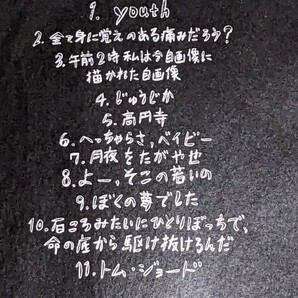 1. youth
2. 全て身に覚えのある痛みだろう?
3. 午前2時私は今自画像に
描かれた自画像
4. じゅうじか
5. 高円寺
6. へっちゃらさ,ベイビー
7. 月夜をたがやせ
8. よー,そこの若いの
9. ぼくの夢でした
10. 石ころみたいにひとりぼっちで,
命の底から駆け抜けるんだ
11. トム・ジョード